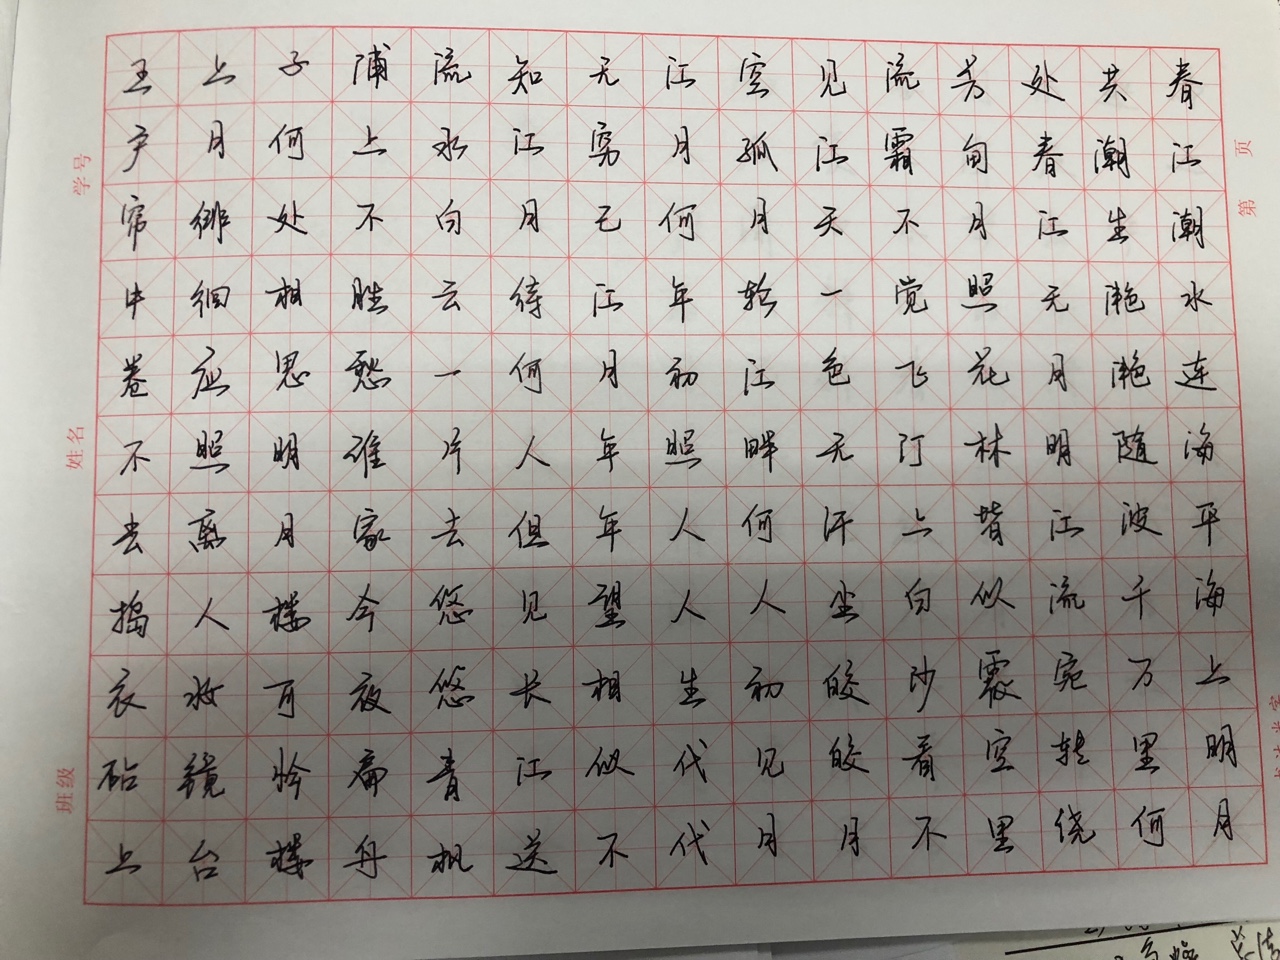 春江潮水连海平海上明月
共潮生滟滟随波千万里何
处春江无月明江流宛转绕
芳甸月照花林皆似霰空里
流霜不觉飞汀上白沙看不
见江天一色无纤尘皎皎月
空孤月轮江畔何人初见月
江月何年初照人人生代代
无穷已江月年年望相似不
知江月待何人但见长江送
流水白云一片去悠悠青枫
浦上不胜愁谁家今夜扁舟
子何处相思明月楼可怜楼
上月徘徊应照离人妆镜台
玉户帘中卷不去捣衣砧上
班级 姓名 学号
第 页